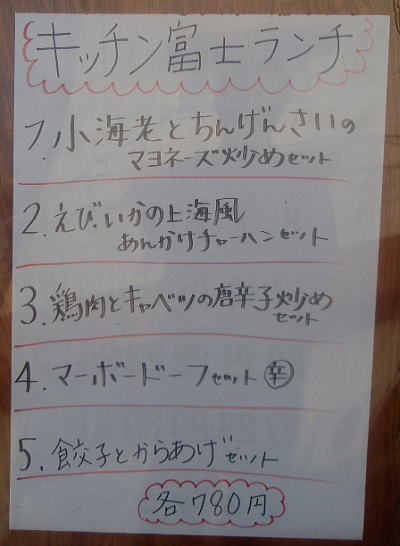 キッチン富士ランチ
1. 小海老とちんげんさいの
マヨネーズ炒めセット
2. えびいかの上海風
あんかけチャーハンセット
3. 鶏肉とキャベツの唐辛子炒め
セット
4. マーボードーフセット 辛
5. 餃子とからあげセット
各780円